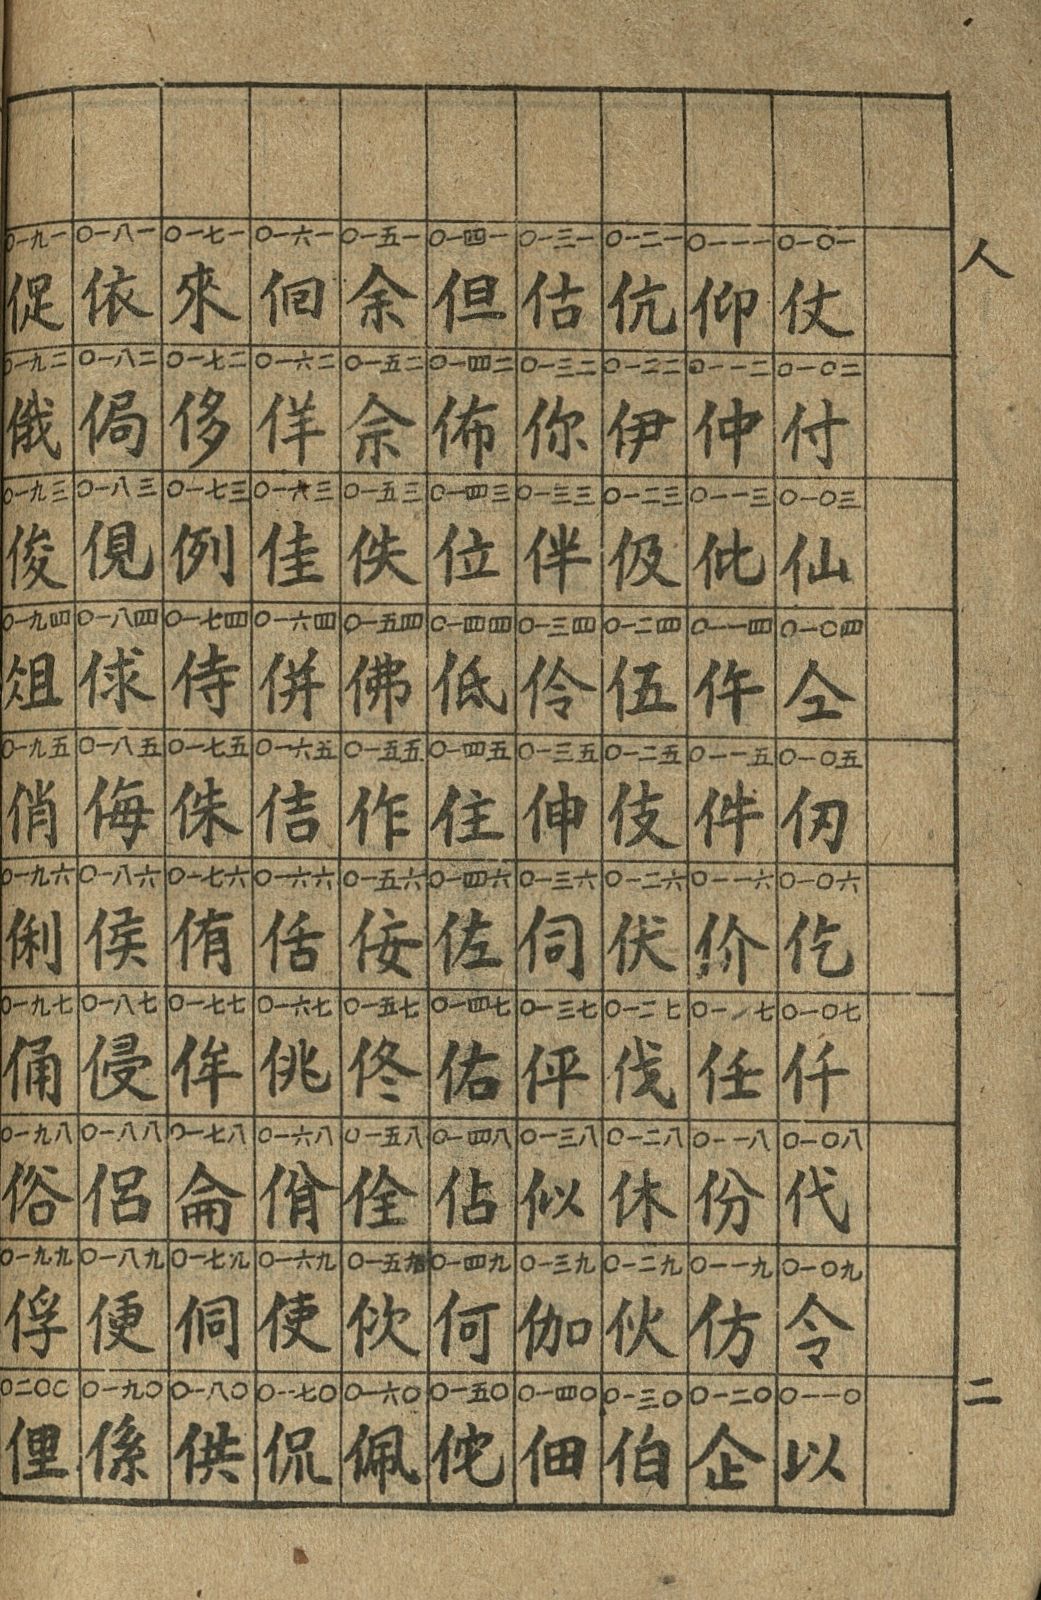 人
〇一〇一 仗
〇一〇二 付
〇一〇三 仙
〇一〇四 仝
〇一〇五 仞
〇一〇六 仡
〇一〇七 仟
〇一〇八 代
〇一〇九 令
〇一一〇 以
〇一一一 仰
〇一一二 仲
〇一一三 仳
〇一一四 仵
〇一一五 件
〇一一六 价
〇一一七 任
〇一一八 份
〇一一九 仿
〇一二〇 企
〇一二一 伉
〇一二二 伊
〇一二三 伋
〇一二四 伍
〇一二五 伎
〇一二六 伏
〇一二七 伐
〇一二八 休
〇一二九 伙
〇一三〇 伯
〇一三一 估
〇一三二 你
〇一三三 伴
〇一三四 伶
〇一三五 伸
〇一三六 伺
〇一三七 伻
〇一三八 似
〇一三九 伽
〇一四〇 佃
〇一四一 但
〇一四二 佈
〇一四三 位
〇一四四 低
〇一四五 住
〇一四六 佐
〇一四七 佑
〇一四八 佔
〇一四九 何
〇一五〇 佗
〇一五一 余
〇一五二 佘
〇一五三 佚
〇一五四 佛
〇一五五 作
〇一五六 佞
〇一五七 佟
〇一五八 佺
〇一五九 佽
〇一六〇 佩
〇一六一 佪
〇一六二 佯
〇一六三 佳
〇一六四 併
〇一六五 佶
〇一六六 佸
〇一六七 佻
〇一六八 佾
〇一六九 使
〇一七〇 侃
〇一七一 來
〇一七二 侈
〇一七三 例
〇一七四 侍
〇一七五 侏
〇一七六 侑
〇一七七 侔
〇一七八 侖
〇一七九 侗
〇一八〇 供
〇一八一 依
〇一八二 侷
〇一八三 俔
〇一八四 俅
〇一八五 侮
〇一八六 侯
〇一八七 侵
〇一八八 侶
〇一八九 便
〇一九〇 係
〇一九一 促
〇一九二 俄
〇一九三 俊
〇一九四 俎
〇一九五 俏
〇一九六 俐
〇一九七 俑
〇一九八 俗
〇一九九 俘
〇二〇〇 俚
二